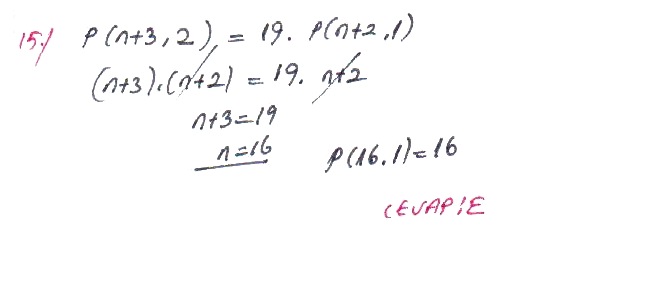 15-) P(n+3,2) = 19. P(n+2,1)
(n+3).(n+2) = 19. n+2
n+3=19
n=16 P(16,1)=16
CEVAP:E